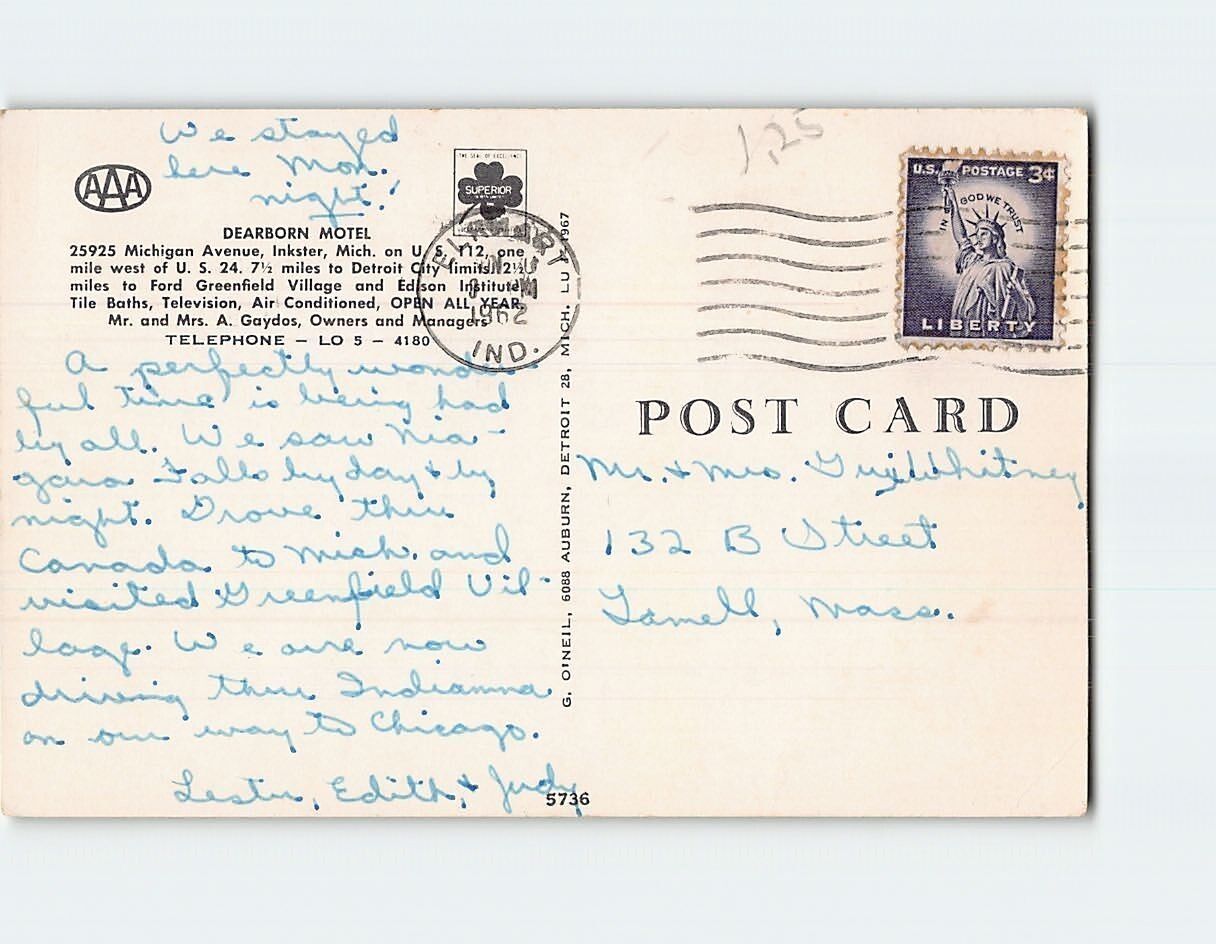 We stayed
here Mon.
night!
AAA
THE SEAL OF EXCELLENCE
SUPERIOR
DEARBORN MOTEL
25925 Michigan Avenue, Inkster, Mich. on U. S. 112, one
mile west of U. S. 24. 7½ miles to Detroit City limits. 2½
miles to Ford Greenfield Village and Edison Institute.
Tile Baths, Television, Air Conditioned, OPEN ALL YEAR.
Mr. and Mrs. A. Gaydos, Owners and Managers
TELEPHONE — LO 5 — 4180
A perfectly wonder-
ful time is being had
by all. We saw Nia-
gara Falls by day & by
night. Drove thru
Canada to Mich. and
visited Greenfield Vil-
lage. We are now
driving thru Indianna
on our way to Chicago.
Lester, Edith, & Judy
5736
G. O'NEIL, 6088 AUBURN, DETROIT 28, MICH. LU 1967
ELKHART
1962
IND.
1.25
U.S. POSTAGE 3¢
IN GOD WE TRUST
LIBERTY
POST CARD
Mr. & Mrs. Guy Whitney
132 B Street
Lowell, Mass.